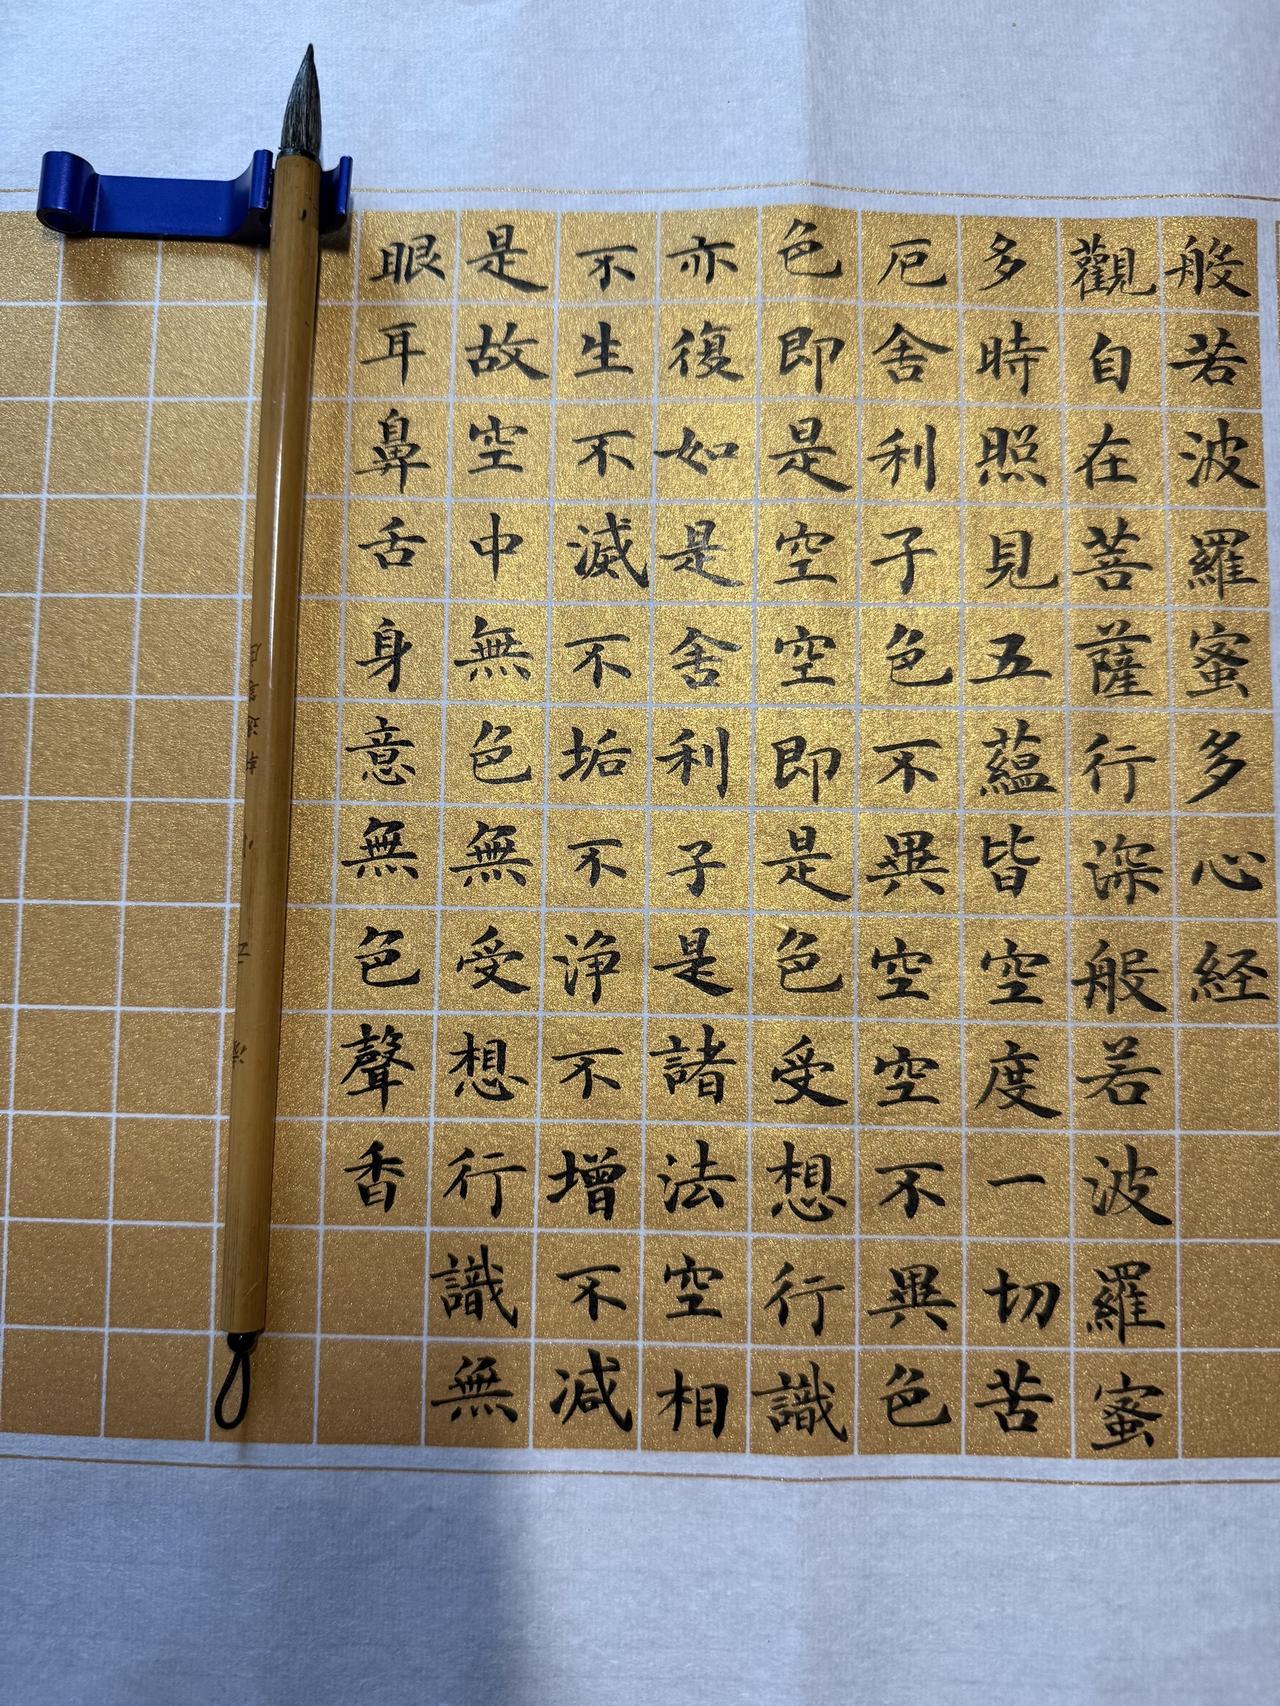 般若波羅蜜多心経
觀自在菩薩行深般若波羅蜜
多時照見五蘊皆空度一切苦
厄舍利子色不異空空不異色
色即是空空即是色受想行識
亦復如是舍利子是諸法空相
不生不滅不垢不浄不增不減
是故空中無色無受想行識無
眼耳鼻舌身意無色聲香